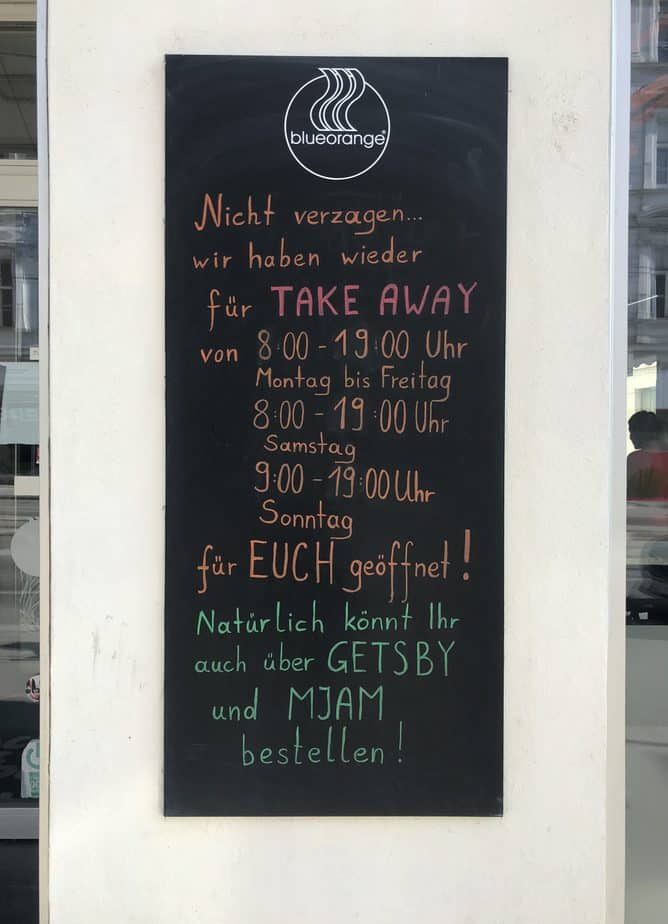 blueorange®
Nicht verzagen...
wir haben wieder
für TAKE AWAY
von 8:00 - 19:00 Uhr
Montag bis Freitag
8:00 - 19:00 Uhr
Samstag
9:00 - 19:00 Uhr
Sonntag
für EUCH geöffnet!
Natürlich könnt Ihr
auch über GETSBY
und MJAM
bestellen!